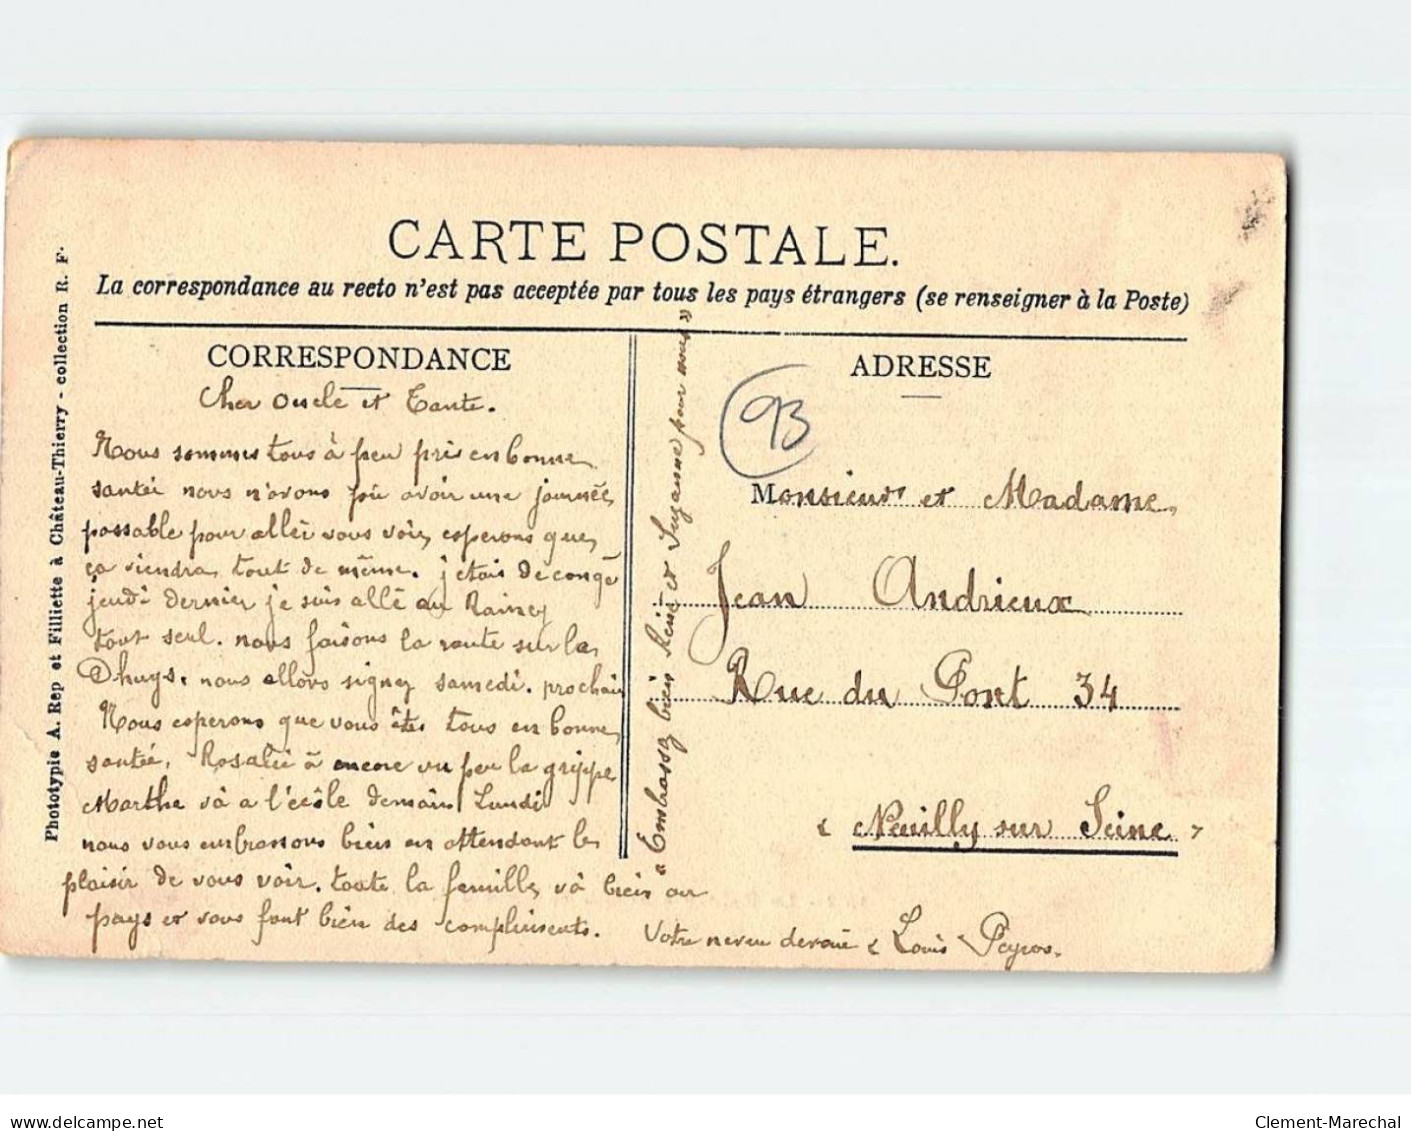 CARTE POSTALE.
La correspondance au recto n'est pas acceptée par tous les pays étrangers (se renseigner à la Poste)
Phototypie A. Rep et Filliette à Château-Thierry - collection R. F.
CORRESPONDANCE
Cher Oncle et Tante.
Nous sommes tous à peu pris en bonne
santée nous n'avons pû avoir une journée
possable pour aller vous voir, esperons que
ça viendra tout de même. j'etais de congé
jeudi dernier je suis allé au Rainey
tout seul. nous faisons la route sur la
Dhuys. nous allons signez samedi. prochain
Nous esperons que vous êtes tous en bonne
santée. Rosalie à encore un peu la grippe
Marthe và a l'école demain Lundi
nous vous embrassons bien en attendant le
plaisir de vous voir. toute la famille và bien au
pays et vous font bien des compliments.
Votre neveu devoué « Louis Peyros.
"Embrassez bien Réné et Suzanne pour nous"
ADRESSE
93
Monsieur et Madame
Jean Andrieux
Rue du Pont 34
« Neuilly sur Seine »
delcampe.net
Clement-Marechal